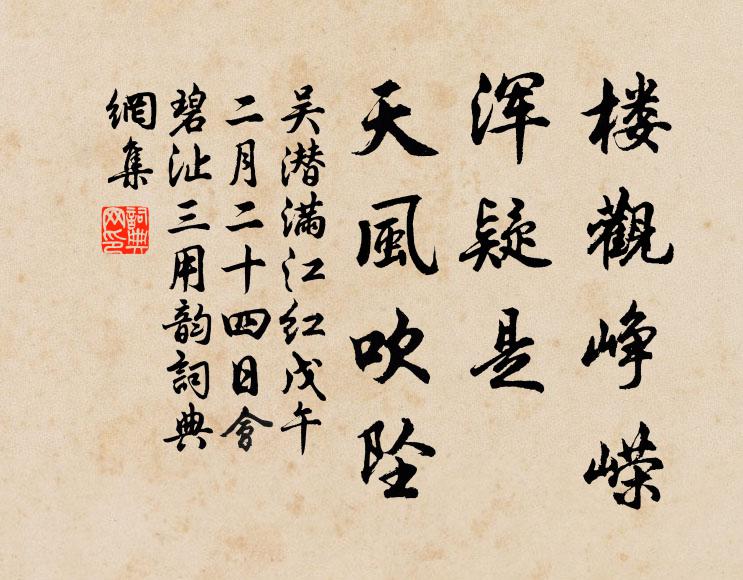 楼觀峥嵘
浑疑是
天風吹坠
吴潜满江红戊午
二月二十四日會
碧沚三用韵詞典
網集
詞典網印